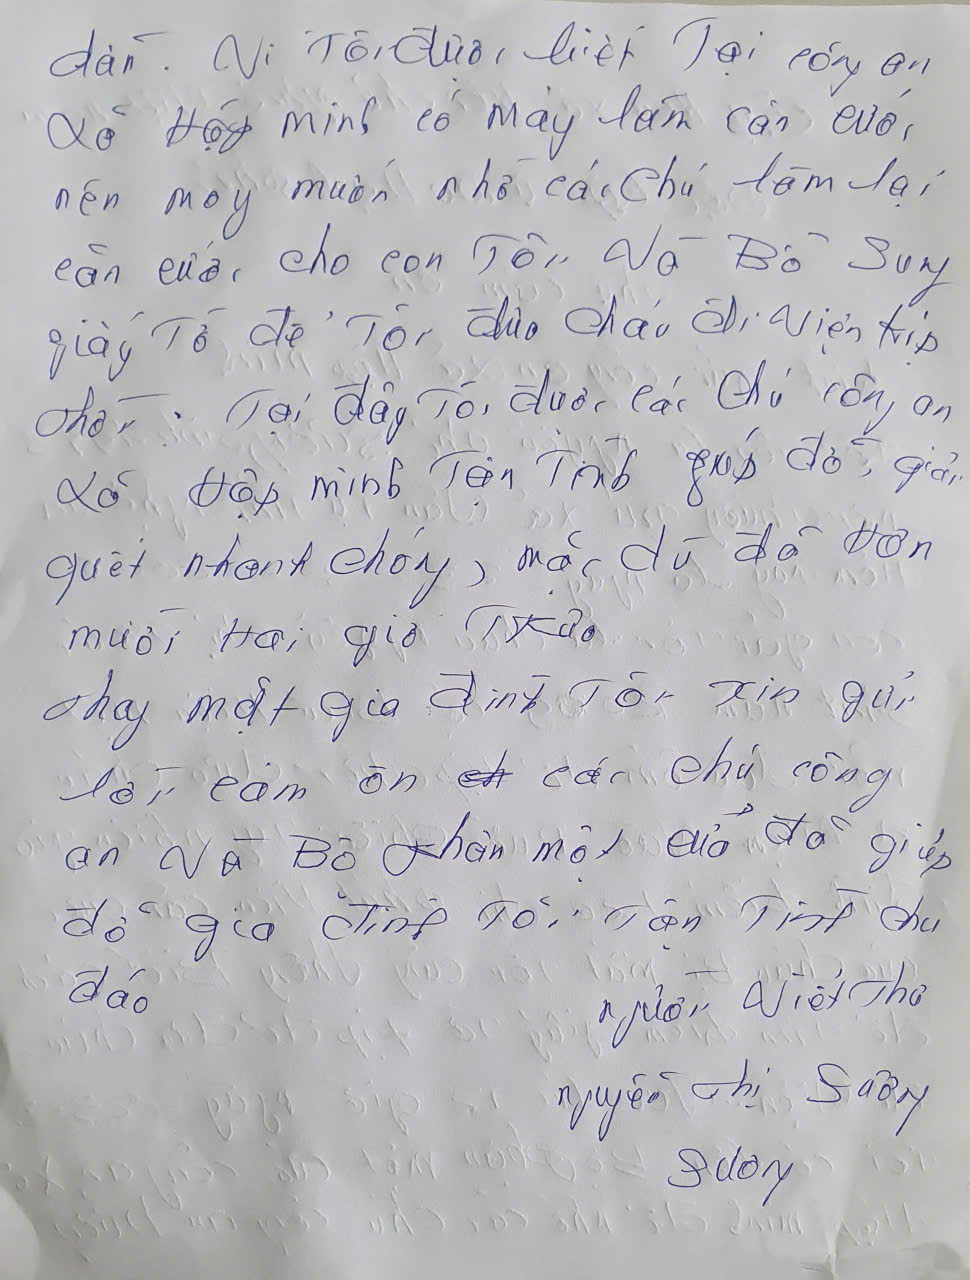 dân. Vì Tôi được biết Tại công an
xã Hợp minh có máy làm căn cước
nên may muốn nhờ các chú làm lại
căn cước cho con Tôi. Và Bổ Sung
giấy Tờ để Tôi đưa cháu đi viện kịp
thời. Tại đây Tôi được các chú công an
xã Hợp minh Tận Tình giúp đỡ, giải
quết nhanh chóng, mặc dù đã hơn
mười Hai giờ Trưa
thay mặt gia đình Tôi xin gửi
lời cảm ơn các chú công
an Và Bộ phận một cửa đã giúp
đỡ gia đình Tôi Tận Tình chu
đáo
người Viết Thơ
nguyễn thị Sương
Sương